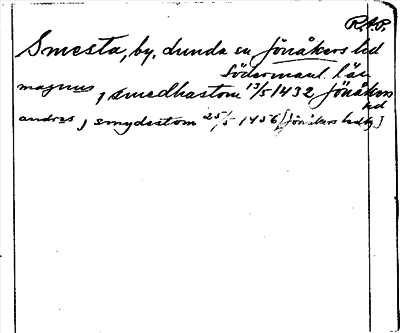 R.A.P.
Smesta, by. Lunda sn Jönåkers hd
Södermanl. län
magnus, smedhastom 13/5 1432 Jönåkers
hd
andres, smydestom 25/5 1456 [Jönåkers hd]